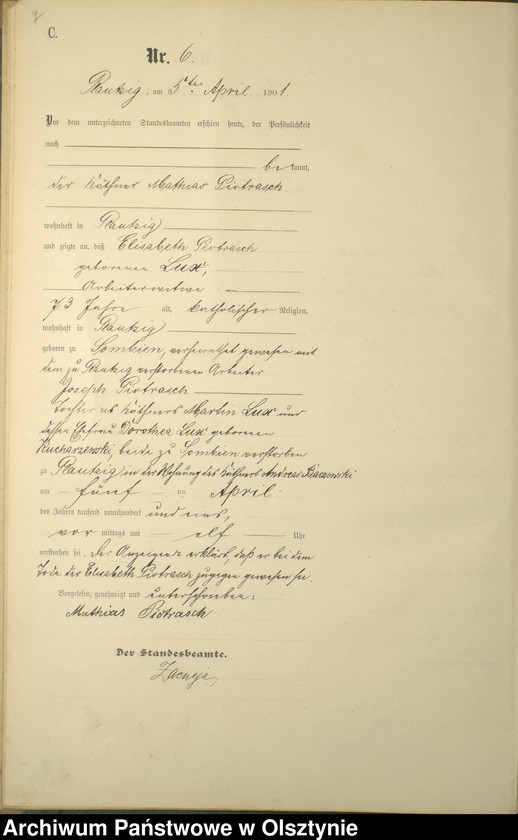 7
C.
Nr. 6.
Plautzig, am 5ten April 1901.
Vor dem unterzeichneten Standesbeamten erschien heute, der Persönlichkeit
nach
bekannt,
der Käthner Mathias Piotrasch
wohnhaft in Plautzig
und zeigte an, daß Elisabeth Piotrasch
geborenen Lux,
Arbeiterwitwe
73 Jahre alt, katholischer Religion,
wohnhaft in Plautzig
geboren zu Sombien, verheirathet gewesen mit
dem zu Plautzig verstorbenen Arbeiter
Joseph Piotrasch
Tochter des Käthners Martin Lux und
dessen Ehefrau Dorothea Lux geborenen
Kucharzewski beide zu Sombien verstorben
zu Plautzig in der Wohnung des Käthners Andreas
am fünf ten April
des Jahres tausend neunhundert und eins,
vor mittags um elf Uhr
verstorben sei. Der Anzeigende erklärt, daß er bei dem
Tode der Elisabeth Piotrasch zugegen gewesen sei.
Vorgelesen, genehmigt und unterschrieben:
Mathias Piotrasch
Der Standesbeamte.
Archiwum Państwowe w Olsztynie